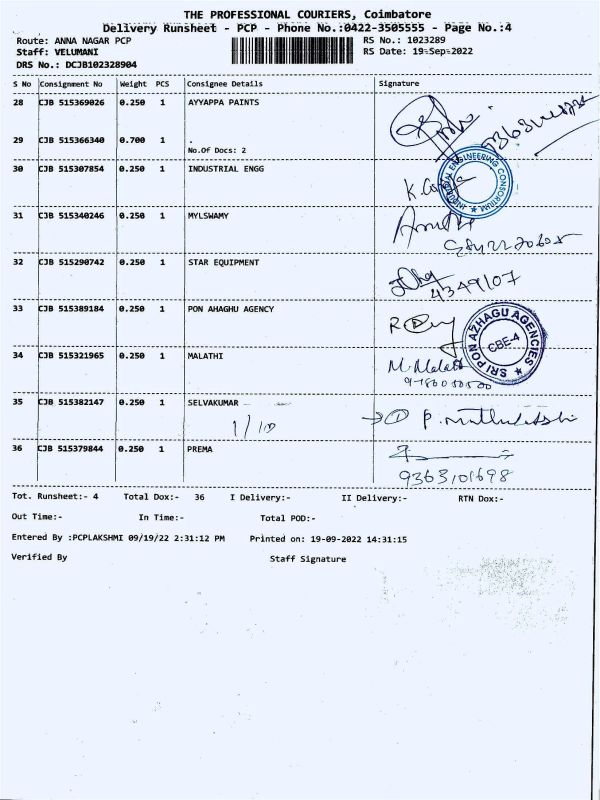 THE PROFESSIONAL COURIERS, Coimbatore
Delivery Runsheet - PCP - Phone No.:0422-3505555 - Page No.:4
Route: ANNA NAGAR PCP RS No.: 1023289
Staff: VELUMANI RS Date: 19-Sep-2022
DRS No.: DCJB102328904
S No Consignment No Weight PCS Consignee Details Signature
28 CJB 515369026 0.250 1 AYYAPPA PAINTS
29 CJB 515366340 0.700 1 .
No.Of Docs: 2
30 CJB 515307854 0.250 1 INDUSTRIAL ENGG
INDUSTRIAL ENGINEERING CONSORTIUM
31 CJB 515340246 0.250 1 MYLSWAMY
32 CJB 515290742 0.250 1 STAR EQUIPMENT
4349107
33 CJB 515389184 0.250 1 PON AHAGHU AGENCY
SRI PON AZHAGU AGENCIES
CBE-4
34 CJB 515321965 0.250 1 MALATHI
M. Malathi
35 CJB 515382147 0.250 1 SELVAKUMAR
1/10
36 CJB 515379844 0.250 1 PREMA
9363101698
Tot. Runsheet:- 4 Total Dox:- 36 I Delivery:- II Delivery:- RTN Dox:-
Out Time:- In Time:- Total POD:-
Entered By :PCPLAKSHMI 09/19/22 2:31:12 PM Printed on: 19-09-2022 14:31:15
Verified By Staff Signature